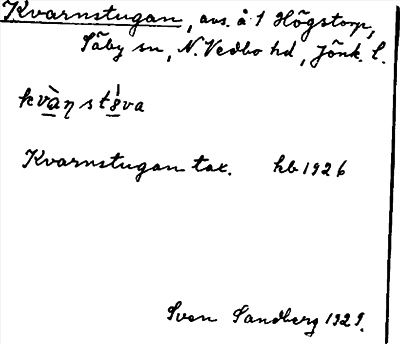 Kvarnstugan, avs. å 1 Högstorp,
Säby sn, N. Vedbo hd, Jönk. l.
kvàn̥ stú̱va
Kvarnstugan tax. hb 1926
Sven Sandberg 1929.